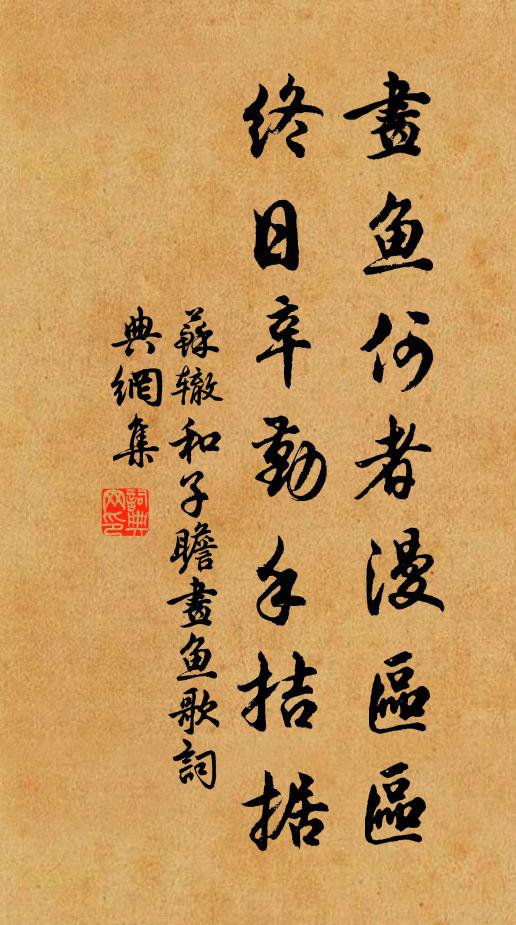 畫魚何者漫區區
終日辛勤手拮据
蘇辙和子瞻畫魚歌詞
典網集
詞典網印